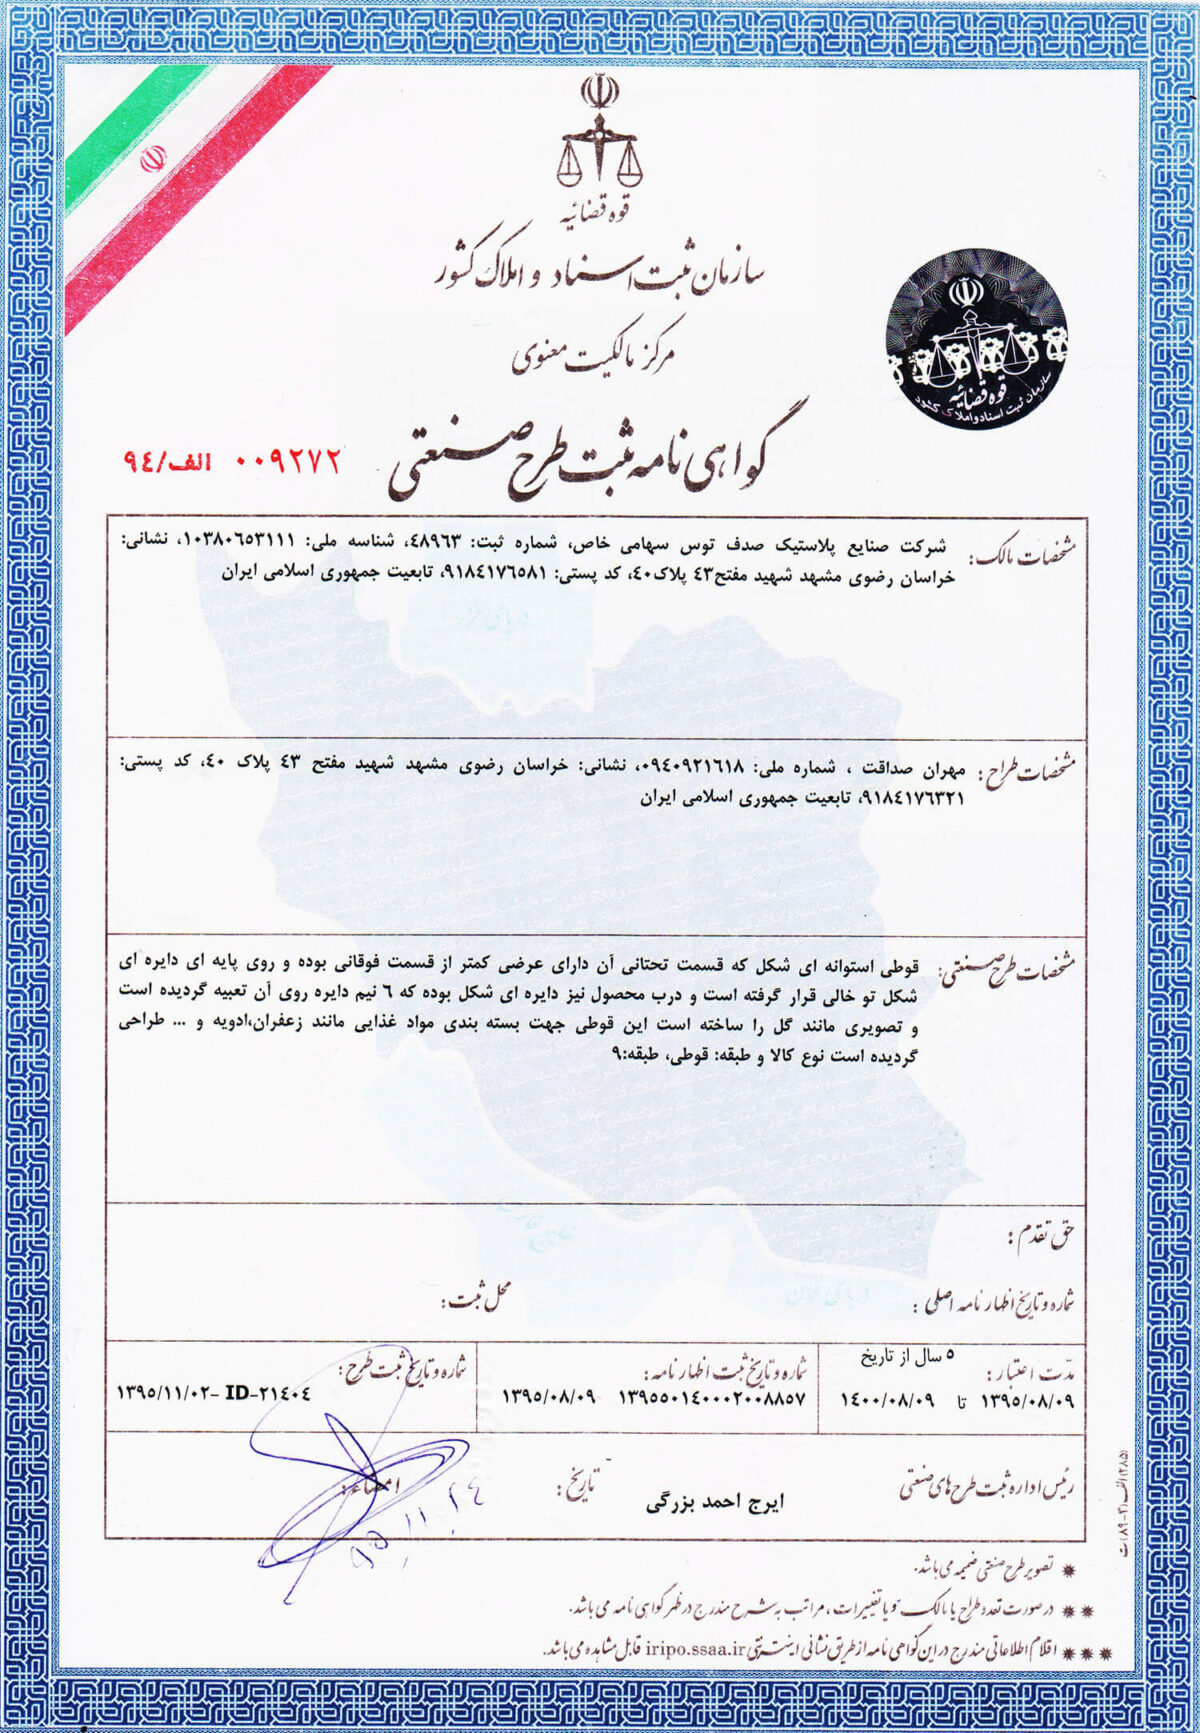 قوه قضائیه
سازمان ثبت اسناد و املاک کشور
مرکز مالکیت معنوی
قوه قضائیه
سازمان ثبت اسناد و املاک کشور
گواهی نامه ثبت طرح صنعتی
الف/۹٤ ۰۰۹۲۷۲
مشخصات مالک: شرکت صنایع پلاستیک صدف توس سهامی خاص، شماره ثبت: ٤۸۹٦۳، شناسه ملی: ۱۰۳۸۰٦۵۳۱۱۱، نشانی:
خراسان رضوی مشهد شهید مفتح٤۳ پلاک٤۰، کد پستی: ۹۱۸٤۱۷٦۵۸۱، تابعیت جمهوری اسلامی ایران
دریای خزر
مشخصات طراح: مهران صداقت ، شماره ملی: ۰۹٤۰۹۲۱٦۱۸، نشانی: خراسان رضوی مشهد شهید مفتح ٤۳ پلاک ٤۰، کد پستی:
۹۱۸٤۱۷٦۳۲۱، تابعیت جمهوری اسلامی ایران
مشخصات طرح صنعتی: قوطی استوانه ای شکل که قسمت تحتانی آن دارای عرضی کمتر از قسمت فوقانی بوده و روی پایه ای دایره ای
شکل تو خالی قرار گرفته است و درب محصول نیز دایره ای شکل بوده که ٦ نیم دایره روی آن تعبیه گردیده است
و تصویری مانند گل را ساخته است این قوطی جهت بسته بندی مواد غذایی مانند زعفران،ادویه و ... طراحی
گردیده است نوع کالا و طبقه: قوطی، طبقه:۹
حق تقدم :
خلیج فارس
شماره و تاریخ اظهارنامه اصلی : محل ثبت:
دریای عمان
مدت اعتبار: ۵ سال از تاریخ
۱۳۹۵/۰۸/۰۹ تا ۱٤۰۰/۰۸/۰۹
شماره و تاریخ ثبت اظهارنامه:
۱۳۹۵۵۰۱٤۰۰۰۲۰۰۸۸۵۷ ۱۳۹۵/۰۸/۰۹
شماره و تاریخ ثبت طرح:
۱۳۹۵/۱۱/۰۲- ID-۲۱٤۰٤
رئیس اداره ثبت طرح های صنعتی ایرج احمد بزرگی تاریخ: امضاء:
۹۵,۱۱,۲٤
✹ تصویر طرح صنعتی ضمیمه می باشد.
✹✹ درصورت تعدد طراح یا مالک و یا تغییرات ، مراتب به شرح مندرج در ظهر گواهی نامه می باشد.
✹✹✹ اقلام اطلاعاتی مندرج در این گواهی نامه از طریق نشانی اینترنتی iripo.ssaa.ir قابل مشاهده می باشد.